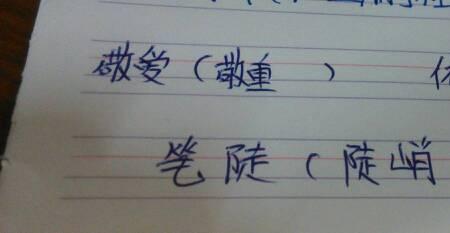 敬爱（敬重 ）
笔陡（陡峭